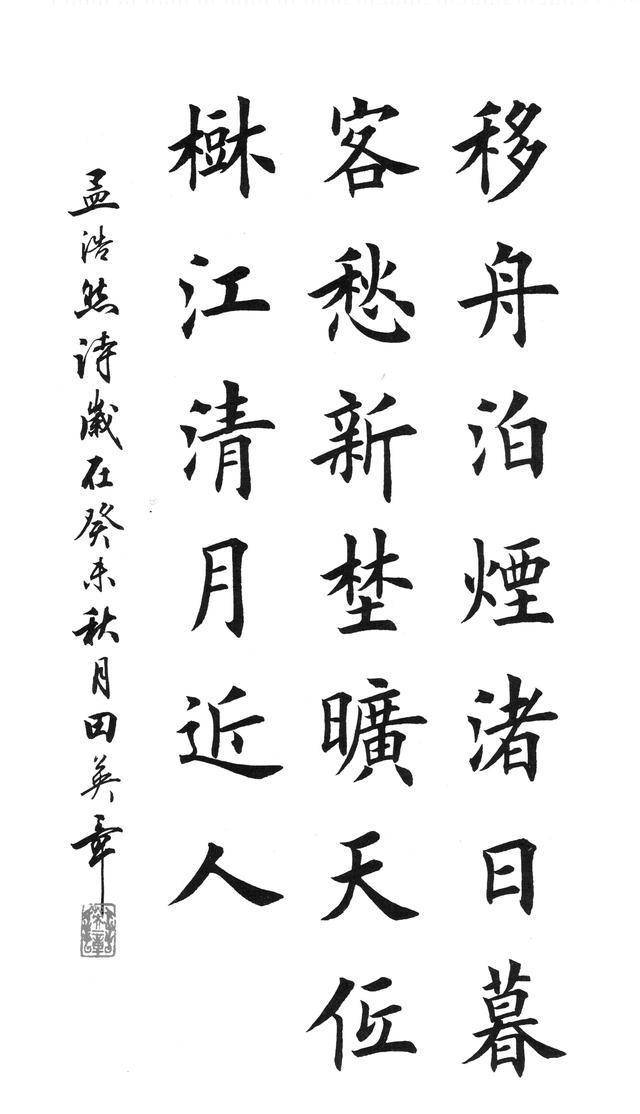 移舟泊煙渚日暮
客愁新埜曠天低
樹江清月近人
孟浩然詩歲在癸未秋月田英章